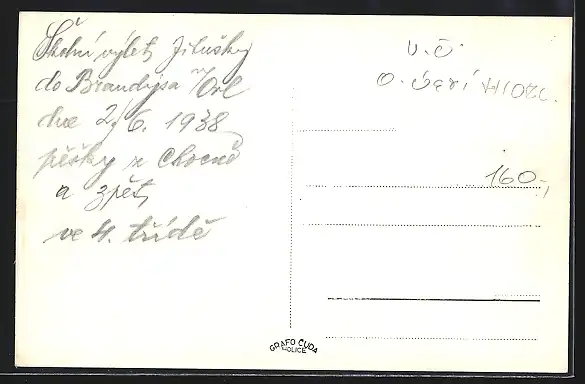 Školní výlet Jitušky
do Brandýsa n/Orl
dne 2/6. 1938
pěšky z Chocně
a zpět,
ve 4. třídě
V.Č.
O. Ústí
160,-
GRAFO ČUDA
HOLICE